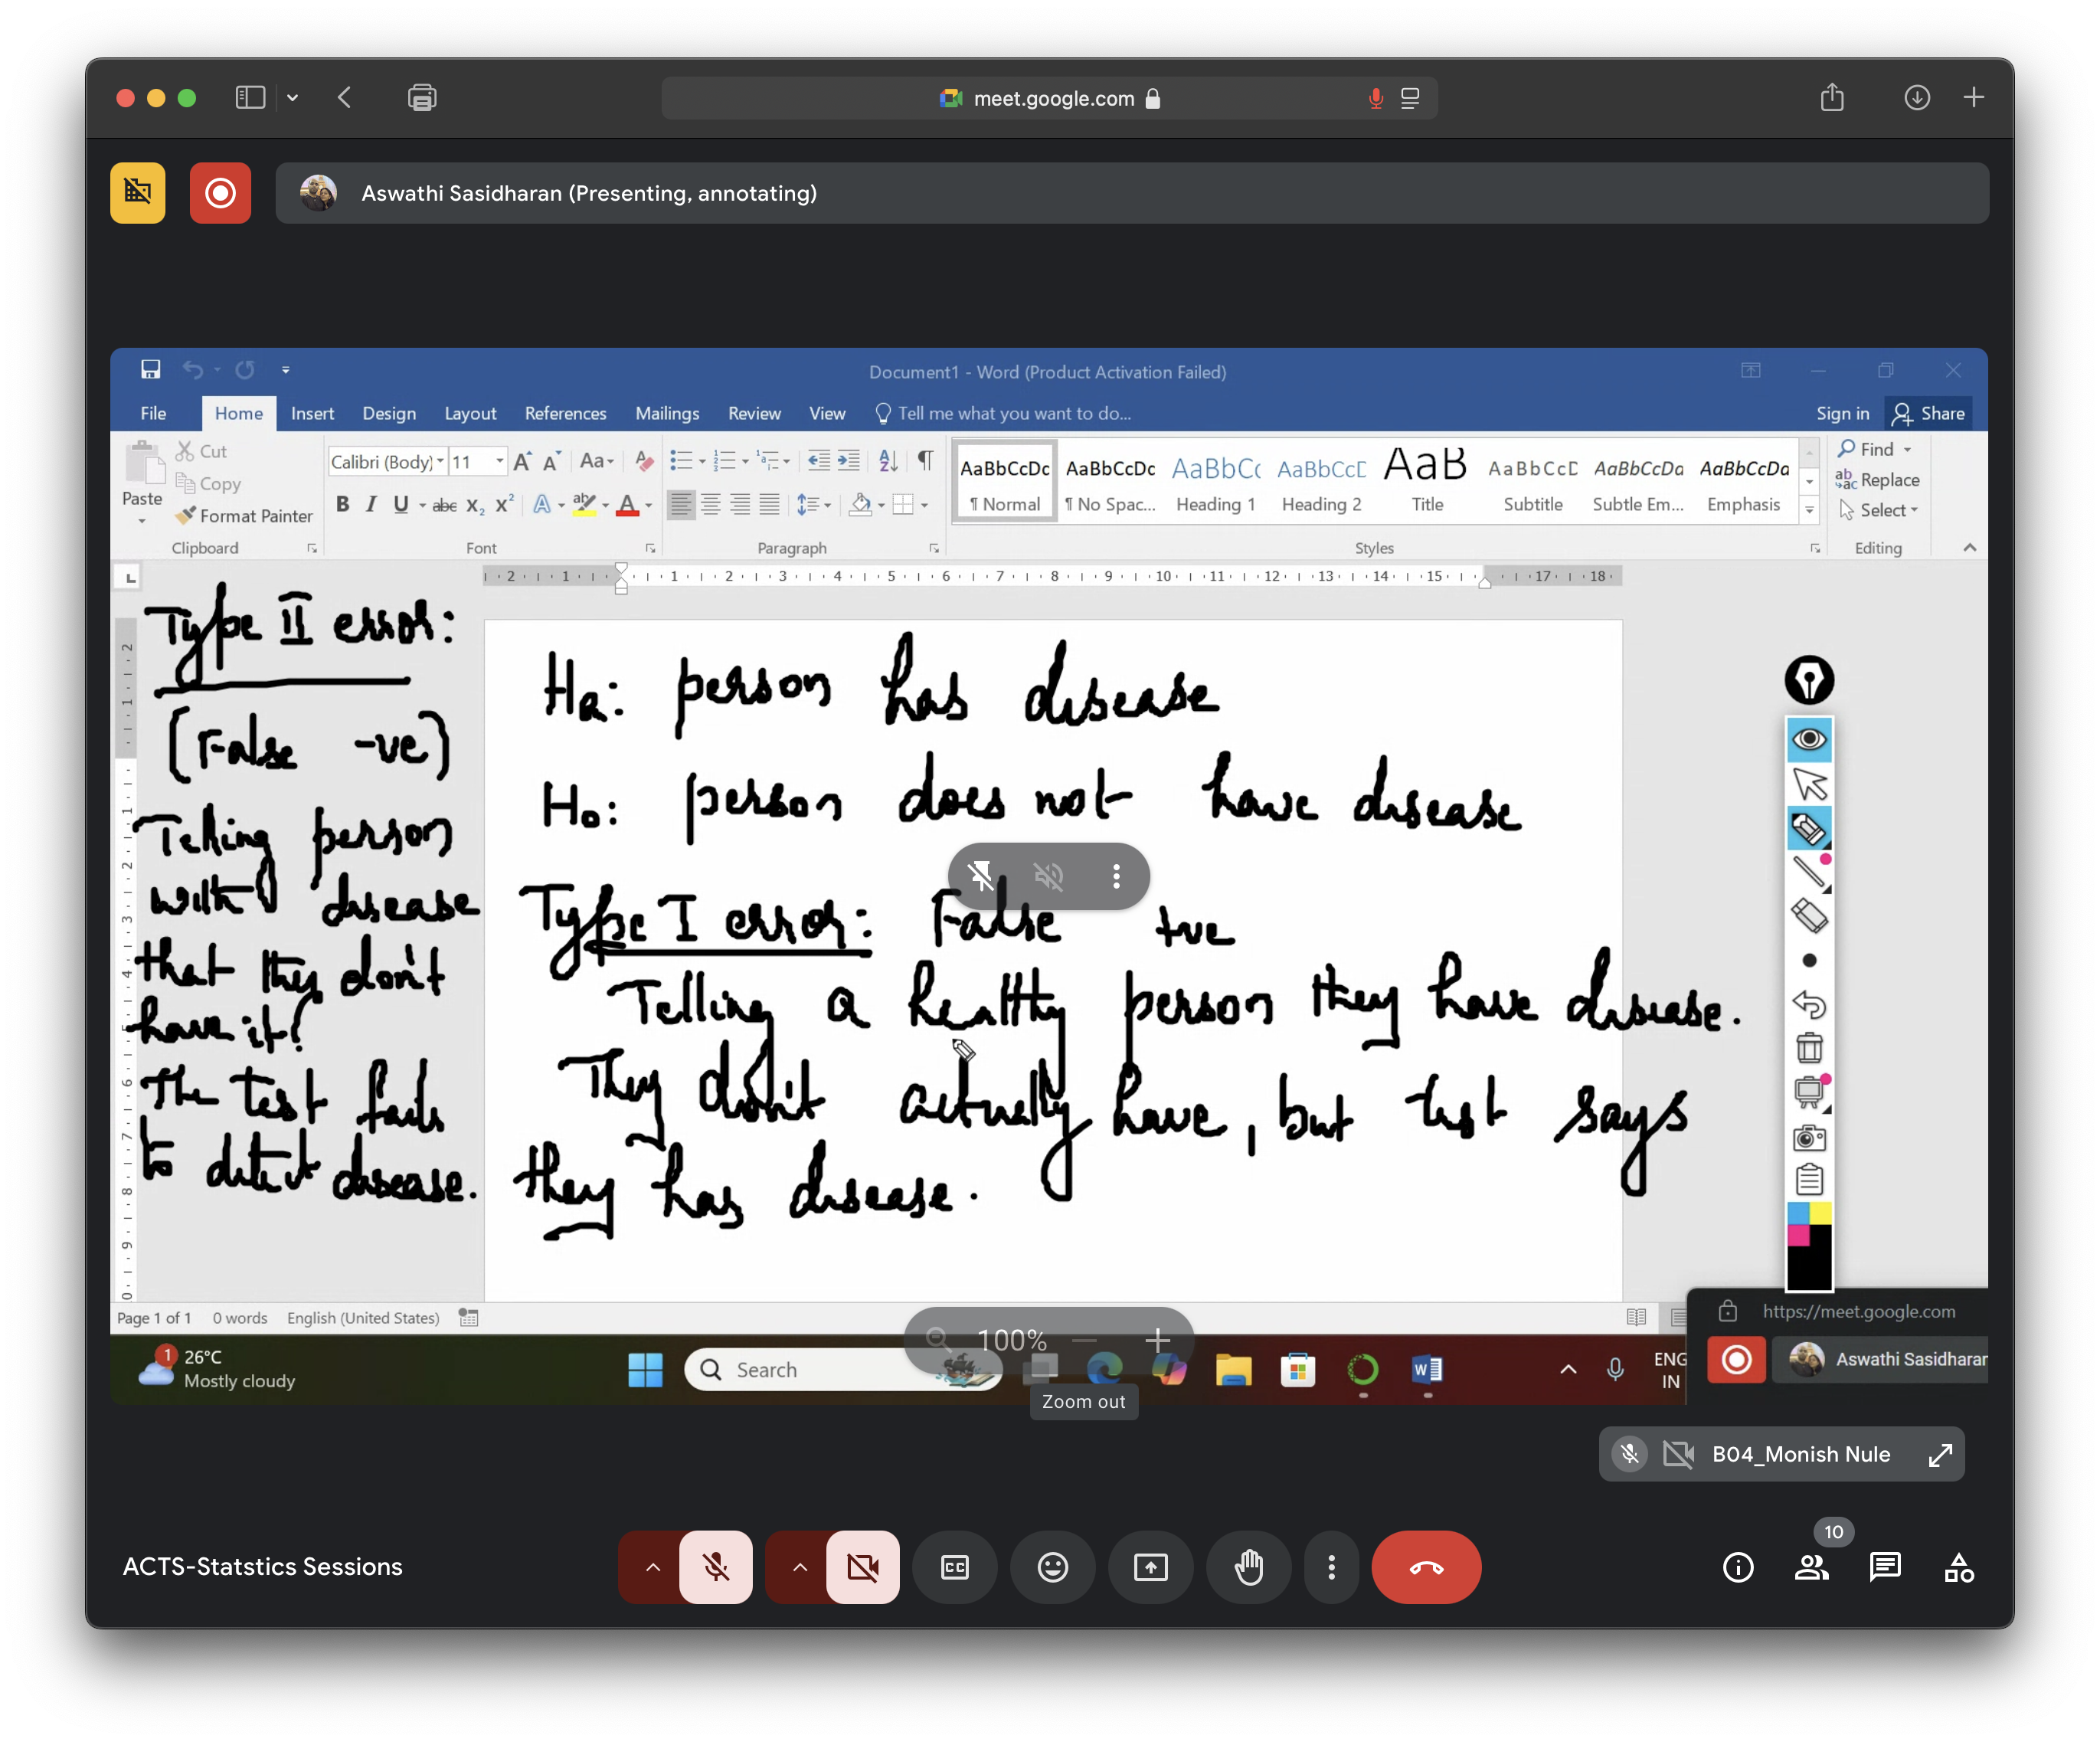 meet.google.com
Aswathi Sasidharan (Presenting, annotating)
Document1 - Word (Product Activation Failed)
File Home Insert Design Layout References Mailings Review View Tell me what you want to do... Sign in Share
Paste Cut Copy Format Painter
Clipboard
Calibri (Body) 11
Font
Paragraph
AaBbCcDc AaBbCcDc AaBbCc AaBbCcD AaB AaBbCcD AaBbCcDd AaBbCcDd
¶ Normal ¶ No Spac... Heading 1 Heading 2 Title Subtitle Subtle Em... Emphasis
Styles
Find
Replace
Select
Editing
2 1 1 2 3 4 5 6 7 8 9 10 11 12 13 14 15 17 18
Type II error:
(False -ve)
Telling person
with disease
that they don't
have it!
The test fails
to detect disease.
Ha: person has disease
Ho: person does not have disease
Type I error: False +ve
Telling a healthy person they have disease.
They didn't actually have, but test says
they has disease.
Page 1 of 1 0 words English (United States)
100%
https://meet.google.com
1 26°C
Mostly cloudy
Search
ENG
IN
Aswathi Sasidharan
Zoom out
B04_Monish Nule
ACTS-Statstics Sessions
10